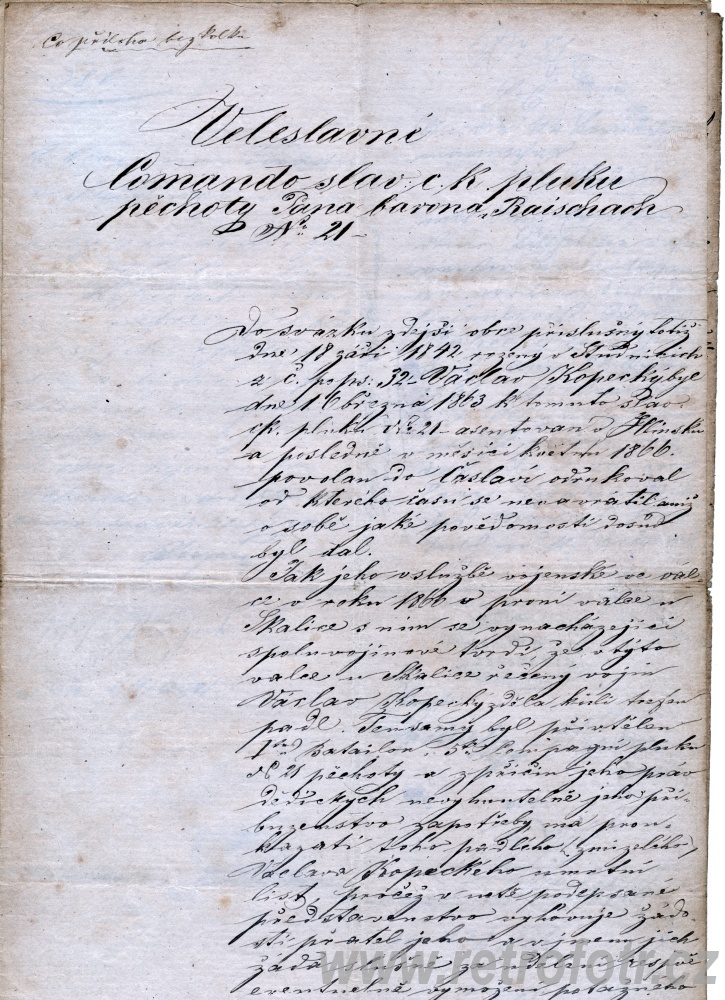 Co příloha bez kolku
Veleslavné
Comando slav: c. k. pluku
pěchoty Pana barona Raischach
No 21
Do svazku zdejší obce příslušný totiž
dne 18 září 1842 rozený v Studnicích
z č. po ps: 32 Václav Kopecký byl
dne 16 března 1863 k tomuto slav.
ck. pluku No 21 asentován v Hlinsku
a posledně v měsíci květnu 1866.
povolán do Čáslavi odrukoval
od kterého času se nenavrátil aniž
o sobě jaké povědomosti dosud
byl dal.
Tak jeho v službě vojenské ve vál-
ce v roku 1866 v první válce u
Skalice s ním se vynacházející
spoluvojínové tvrdí, že v této
válce u Skalice řečený vojín
Václav Kopecký z děla kulí trefen
padl. Tensamý byl přivtělen
Batailon 5té kompagni pluku
No 21 pěchoty a z příčin jeho práv
dědických nevyhnutelně jeho pří-
buzenstvo zapotřeby má prou-
kázati toho padlého (zmizelého)
Václava Kopeckého úmrtní
list, pročež v nete podepsané
představenstvo vyhovuje žádo-
sti přátel jeho a v jmenu jich
žádá
eventuelně vymožení
www.retrofotr.cz